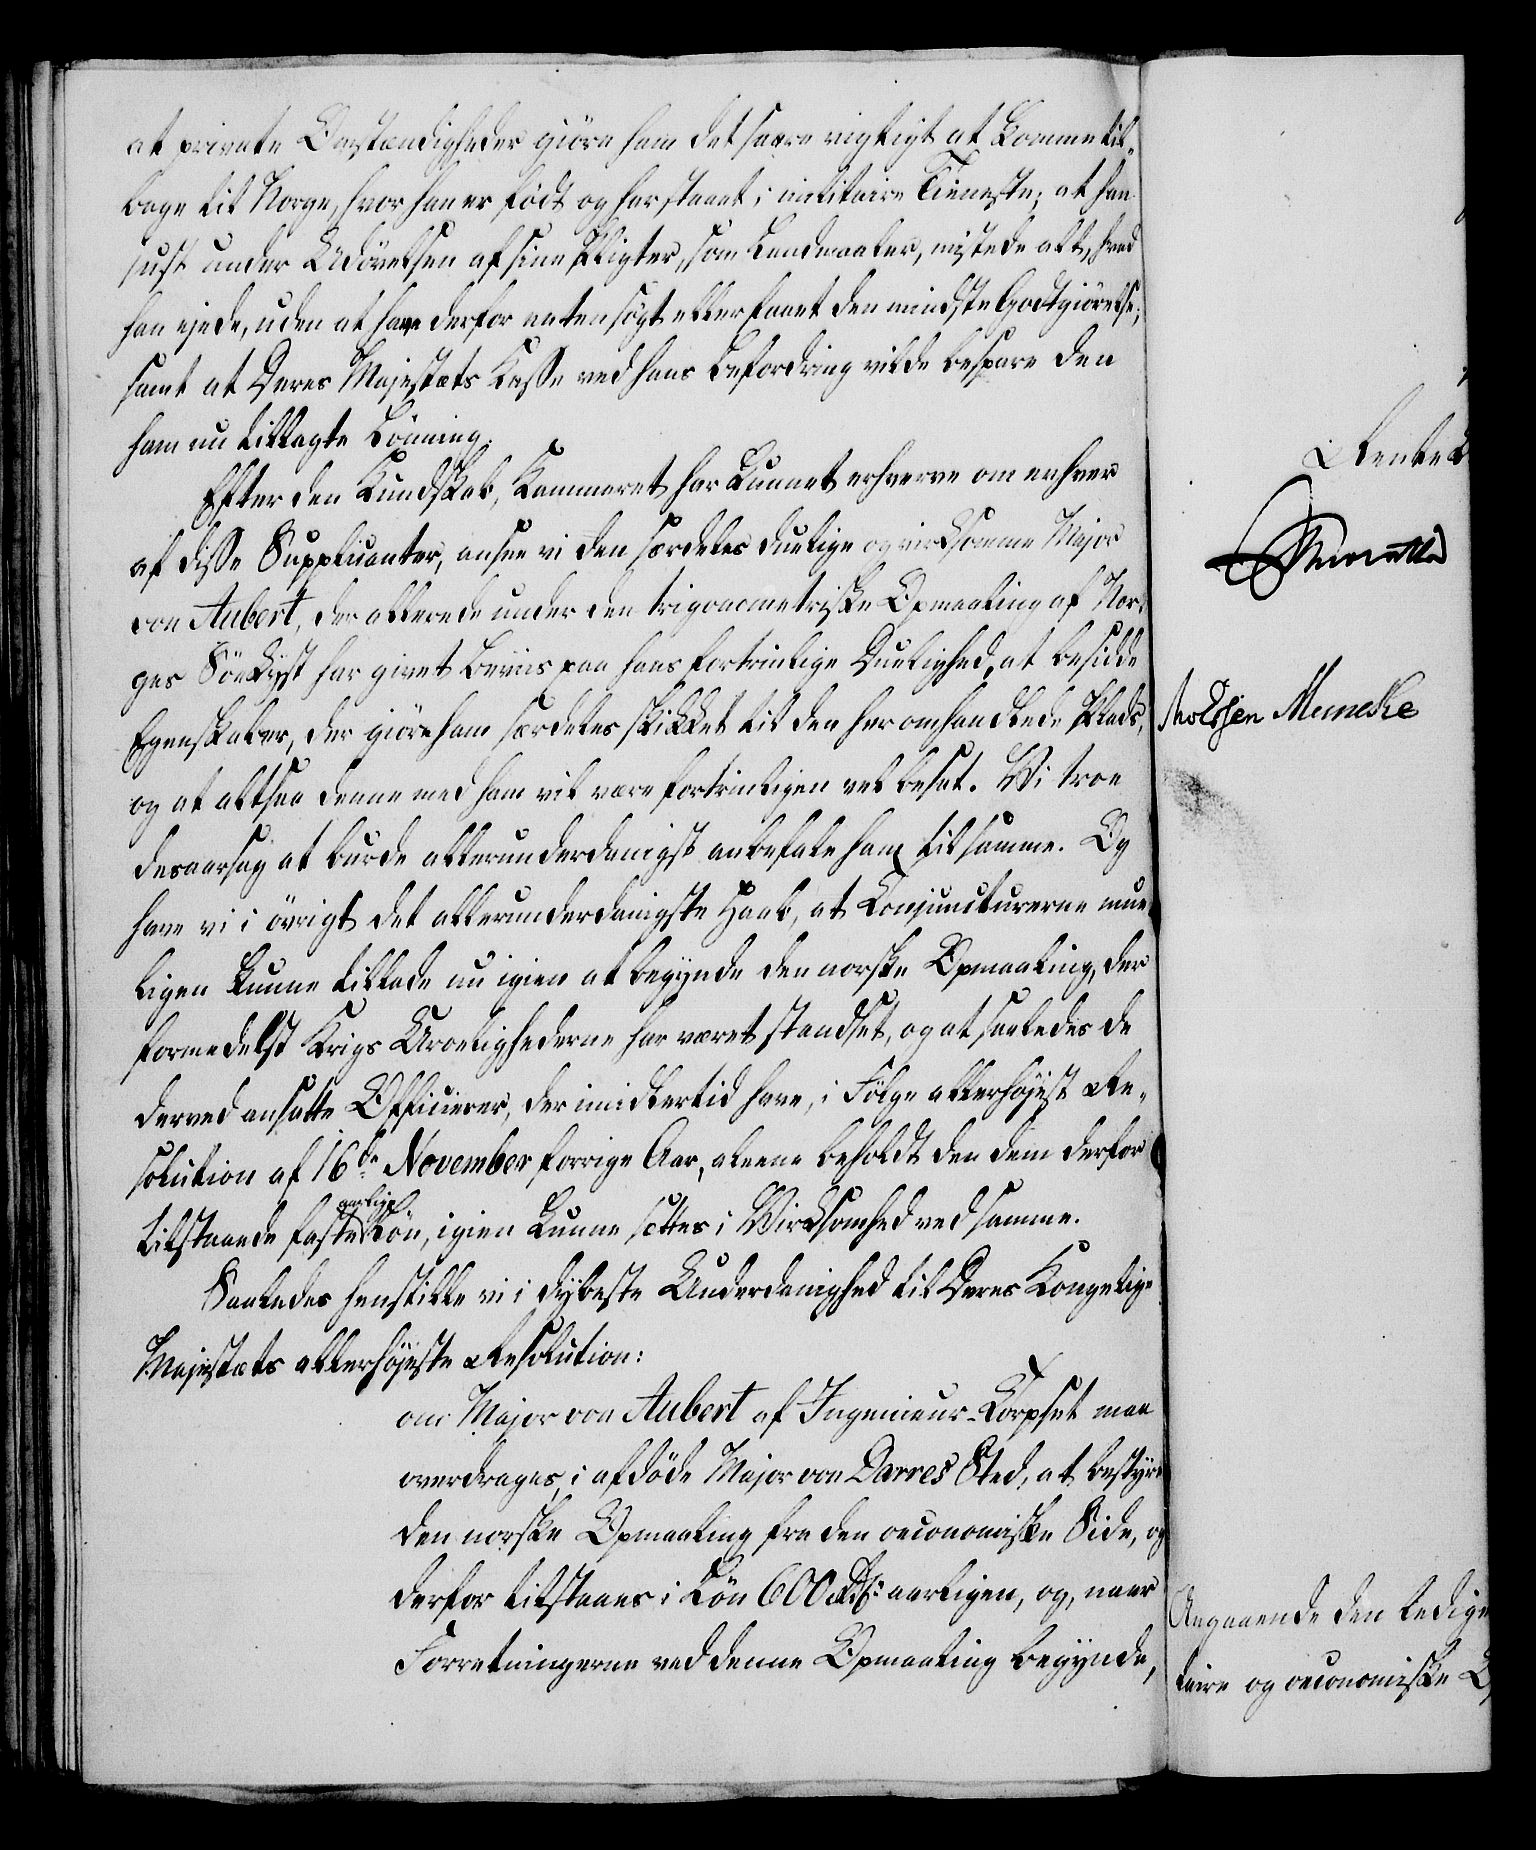 at private Omstændigheder giöre ham det saare vigtigt at komme til-
bage til Norge, hvor han er födt og har staaet i militaire Tieneste; at han
just under Udövelsen af sine Pligter, som Landmaaler, mistede alt, hvad
han ejede, uden at have derfor enten sögt eller faaet den mindste Godtgiörelse;
samt at Deres Majestæts Kasse ved hans Befordring vilde bespare den
ham nu tillagte Lönning.
Efter den Kundskab, Kammeret har kunnet erhverve om enhver
af disse Supplicanter, ansee vi den særdeles duelige og virksomme Major
von Aubert, der allerede under den trigonometriske Opmaaling af Nor-
ges Söekyst har givet Beviis paa hans fortrinlige Duelighed, at besidde
Egenskaber, der giöre ham særdeles skikket til den her omhandlede Plads,
og at altsaa denne med ham vil være fortrinligen vel besat. Vi troe
desaarsag at burde allerunderdanigst anbefale ham til samme. Og
have vi i övrigt det allerunderdanigste Haab, at Conjuncturerne mue-
ligen kunne tillade nu igien at begynde den norske Opmaaling, der
formedelst Krigs Uroelighederne har været standset, og at saaledes de
derved ansatte Officierer, der imidlertid have, i Fölge allerhöjest Re-
solution af 16de November forrige Aar, aleene beholdt den dem derfor
tilstaaede faste aarlige Lön, igien kunne sættes i Virksomhed ved samme.
Saaledes henstille vi i dybeste Underdanighed til Deres Kongelige
Majestæts allerhöjeste Resolution:
om Major von Aubert af Ingenieur-Corpset maa
overdrages, i afdöde Major von Darres Sted, at bestyre
den norske Opmaaling fra den oeconomiske Side, og
derfor tilstaaes i Lön 600 Rd: aarligen, og, naar
Forretningerne ved denne Opmaaling begynde,
Rentek
Meincke
Angaaende den ledige
taire og oeconomiske